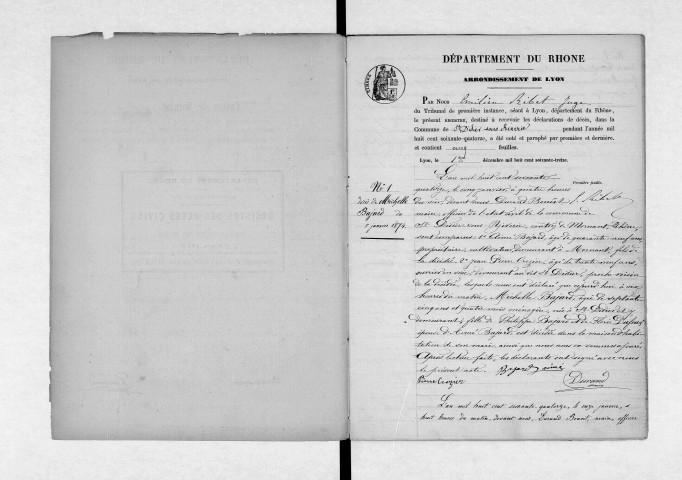 DÉPARTEMENT DU RHONE
ARRONDISSEMENT DE LYON
PAR NOUS Emilien Ribet Juge
du Tribunal de première instance, séant à Lyon, département du Rhône,
le présent REGISTRE, destiné à recevoir les déclarations de décès, dans la
Commune de St Didier sous Riverie pendant l'année mil
huit cent soixante-quatorze, a été coté et paraphé par première et dernière,
et contient cinq feuilles.
Lyon, le 1er décembre mil huit cent soixante-treize.
Première feuille.
E. Ribet
N° 1
décès de Michelle
Bajard du
5 janvier 1874
L'an mil huit cent soixante
quatorze, le cinq janvier, à quatre heures
du soir, devant nous Durand Benoit
maire, officier de l'état civil de la commune de
St Didier sous Riverie, canton de Mornant, Rhône,
sont comparus 1° Aimé Bajard, âgé de quarante neuf ans,
propriétaire cultivateur, demeurant à Mornant, fils de
la décédée 2° Jean Pierre Crozier, âgé de trente neuf ans,
ouvrier en soie, demeurant au dit St Didier, proche voisin
de la décédée, lesquels nous ont déclaré que aujourd'hui à
heures du matin, Michelle Bajard, âgée de septante
cinq ans et quatre mois ménagère, née à St Didier et y
demeurant, fille de Philippe Bajard et de
épouse d'Aimé Bajard, est décédée dans la maison d'habi
tation de son mari, ainsi que nous nous en sommes assuré
Après lecture faite, les déclarants ont signé avec nous
le présent acte. Bajard aimé
Pierre Crozier
Durand
L'an mil huit cent soixante quatorze, le onze janvier, à
huit heures du matin, devant nous, Durand Benoit, maire, officier